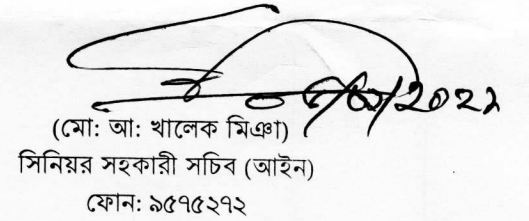 (মো: আ: খালেক মিঞা)
সিনিয়র সহকারী সচিব (আইন)
ফোন: ৯৫৭৫২৭২